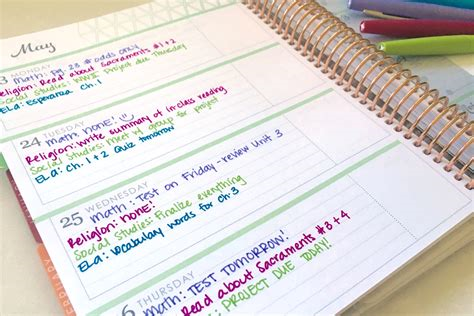 May
3 MONDAY
math: pg. 23 # odds ONLY
Religion: Read about Sacraments #1+2
Social Studies: WWII Project due Thursday
ELA: Esperanza Ch.1
24 TUESDAY
math: NONE!
Religion: Write summary of in-class reading
Social Studies: Meet w/ group for project
ELA: Ch. 1+2 Quiz tomorrow
25 WEDNESDAY
math: Test on Friday - review Unit 3
Religion: NONE!
Social Studies: Finalize everything
ELA: Vocabulary words for ch.3
6 THURSDAY
math: TEST TOMORROW!
Read about Sacraments #3+4
PROJECT DUE TODAY!